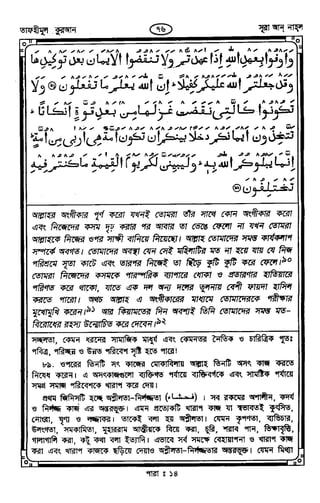 তাফহীমুল কুরআন
৭৬
সূরা আন্ নাহ্‌ল
وَاَوْفُوْا بِعَهْدِ اللهِ اِذَا عٰهَدْتُّمْ وَلَا تَنْقُضُوا الْاَيْمَانَ بَعْدَ تَوْكِيْدِهَا
وَقَدْ جَعَلْتُمُ اللهَ عَلَيْكُمْ كَفِيْلًا ؕ اِنَّ اللهَ يَعْلَمُ مَا تَفْعَلُوْنَ ۞ وَلَا
تَكُوْنُوْا كَالَّتِيْ نَقَضَتْ غَزْلَهَا مِنْۢ بَعْدِ قُوَّةٍ اَنْكَاثًا ؕ
تَتَّخِذُوْنَ اَيْمَانَكُمْ دَخَلًاۢ بَيْنَكُمْ اَنْ تَكُوْنَ اُمَّةٌ هِيَ اَرْبٰى مِنْ اُمَّةٍ ؕ
اِنَّمَا يَبْلُوْكُمُ اللهُ بِهٖ ؕ وَلَيُبَيِّنَنَّ لَكُمْ يَوْمَ الْقِيٰمَةِ مَا كُنْتُمْ فِيْهِ
تَخْتَلِفُوْنَ ۞
আল্লাহর অংগীকার পূর্ণ করো যখনই তোমরা তাঁর সাথে কোন অংগীকার করো
এবং নিজেদের কসম দৃঢ় করার পর আবার তা ভেঙে ফেলো না যখন তোমরা
আল্লাহকে নিজের ওপর সাক্ষী বানিয়ে নিয়েছো। আল্লাহ তোমাদের সমস্ত কার্যকলাপ
সম্পর্কে অবগত। তোমাদের অবস্থা যেন সেই মহিলাটির মত না হয়ে যায় যে নিজ
পরিশ্রমে সূতা কাটে এবং তারপর নিজেই তা ছিঁড়ে কুটি কুটি করে ফেলে।৯০
তোমরা নিজেদের কসমকে পারস্পরিক ব্যাপারে ধোকা ও প্রতারণার হাতিয়ারে
পরিণত করে থাকো, যাতে এক দল অন্য দলের তুলনায় বেশী ফায়দা হাসিল
করতে পারো। অথচ আল্লাহ এ অংগীকারের মাধ্যমে তোমাদেরকে পরীক্ষার
মুখোমুখি করেন।৯১ আর কিয়ামতের দিন অবশ্যই তিনি তোমাদের সমস্ত মত-
বিরোধের রহস্য উন্মোচিত করে দেবেন।৯২
সচ্ছলতা, কেমন ধরনের সামাজিক মাধুর্য এবং কেমনতর নৈতিক ও চারিত্রিক পূতঃ
পবিত্র, পরিচ্ছন্ন ও উন্নত পরিবেশ সৃষ্টি হতে পারে।
৮৯. ওপরের তিনটি সৎ কাজের মোকাবিলায় আল্লাহ তিনটি অসৎ কাজ করতে
নিষেধ করেন। এ অসৎকাজগুলো ব্যক্তিগত পর্যায়ে ব্যক্তিবর্গকে এবং সামষ্টিক পর্যায়ে
সমগ্র সমাজ পরিবেশকে খারাপ করে দেয়।
প্রথম জিনিসটি হচ্ছে অশ্লীলতা-নির্লজ্জতা (فحشاء)। সব রকমের অশালীন, কদর্য
ও নির্লজ্জ কাজ এর অন্তরভুক্ত। এমন প্রত্যেকটি খারাপ কাজ যা স্বভাবতই কুৎসিত,
নোংরা, ঘৃণ্য ও লজ্জাকর। তাকেই বলা হয় অশ্লীল। যেমন কৃপণতা, ব্যভিচার,
উলংগতা, সমকামিতা, মুহাররাম আত্মীয়কে বিয়ে করা, চুরি, শরাব পান, ভিক্ষাবৃত্তি,
গালাগালি করা, কটু কথা বলা ইত্যাদি। এভাবে সর্ব সমক্ষে বেহায়াপনা ও খারাপ কাজ
করা এবং খারাপ কাজকে ছড়িয়ে দেয়াও অশ্লীলতা-নির্লজ্জতার অন্তরভুক্ত। যেমন মিথ্যা
পারা : ১৪